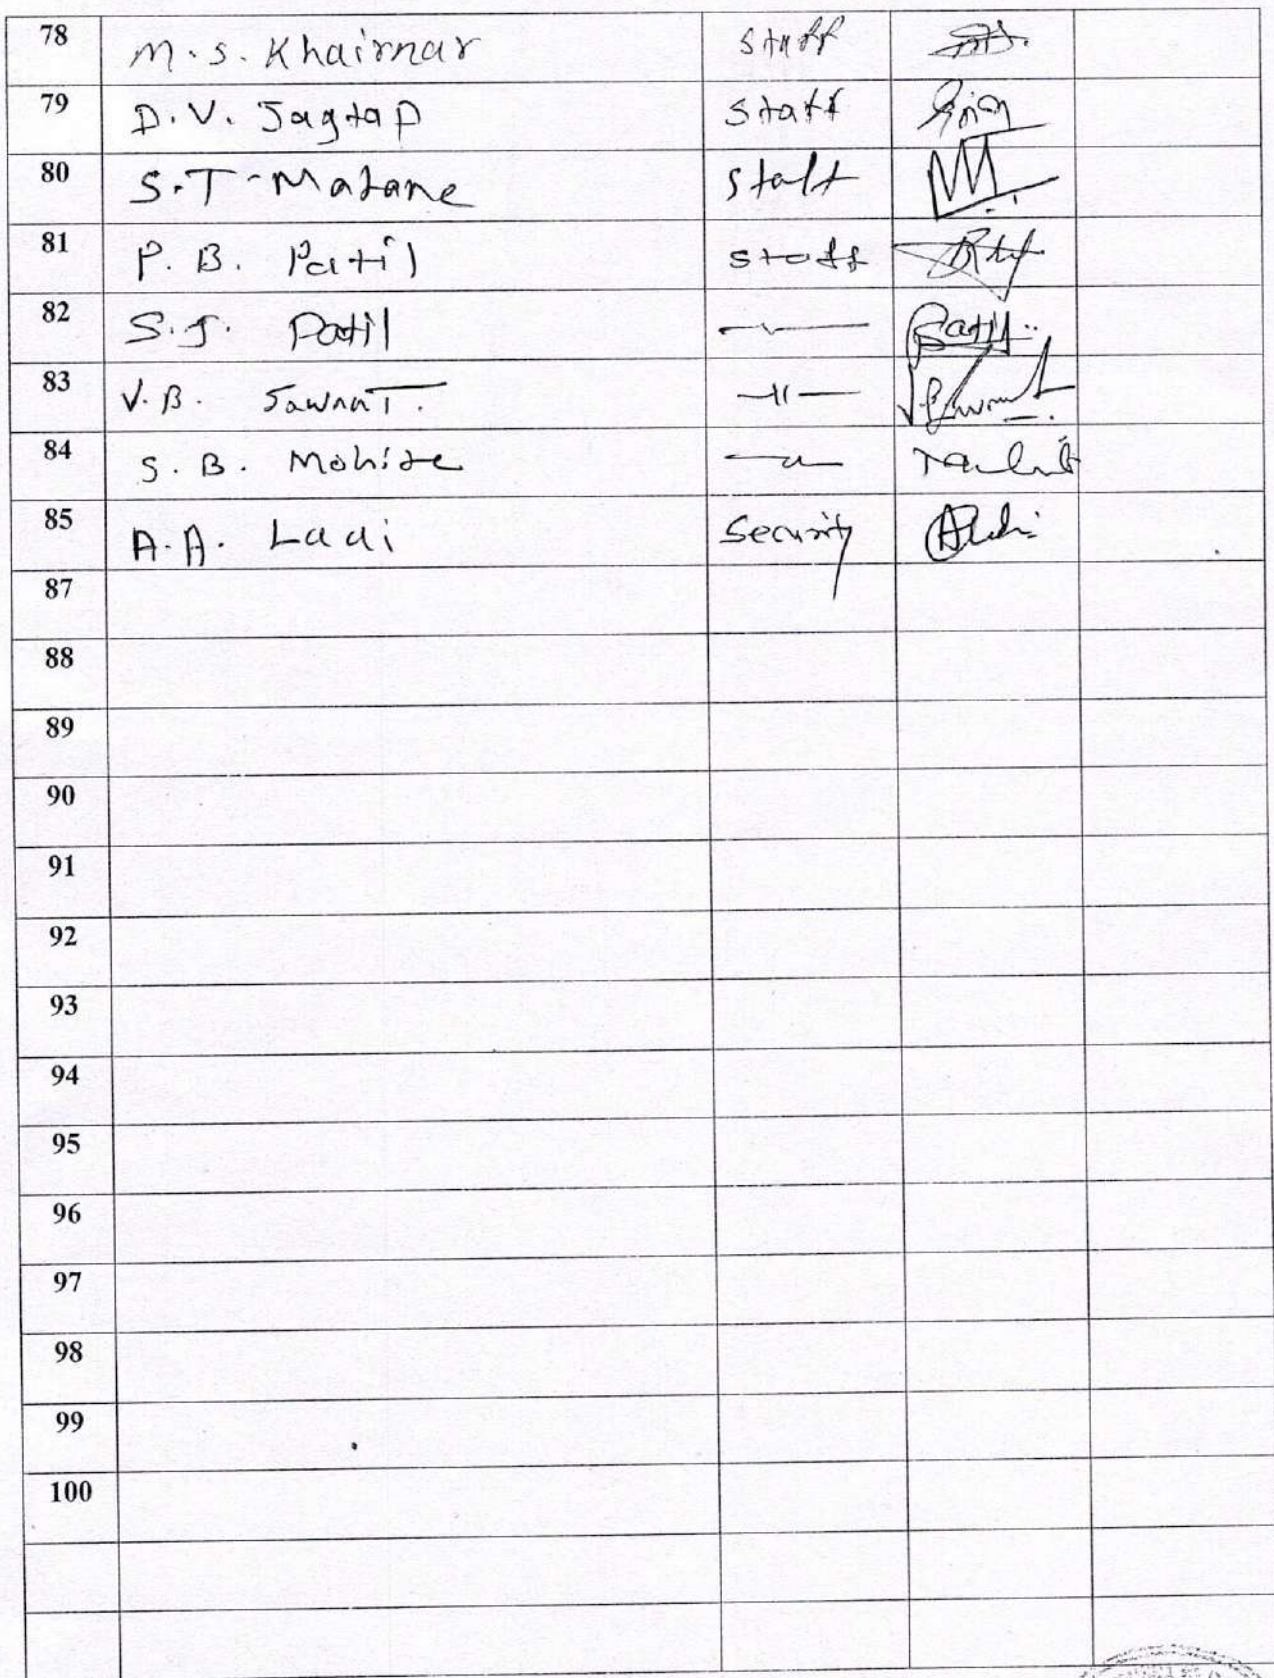 78 M.S. Khairnar Staff
79 D.V. Jagtap Staff
80 S.T-Matane Staff
81 P.B. Patil Staff
82 S.J. Patil —〃— Patil
83 V.B. Sawant. —〃—
84 S.B. Mohite —〃—
85 A.A. Ladi Security
87
88
89
90
91
92
93
94
95
96
97
98
99
100